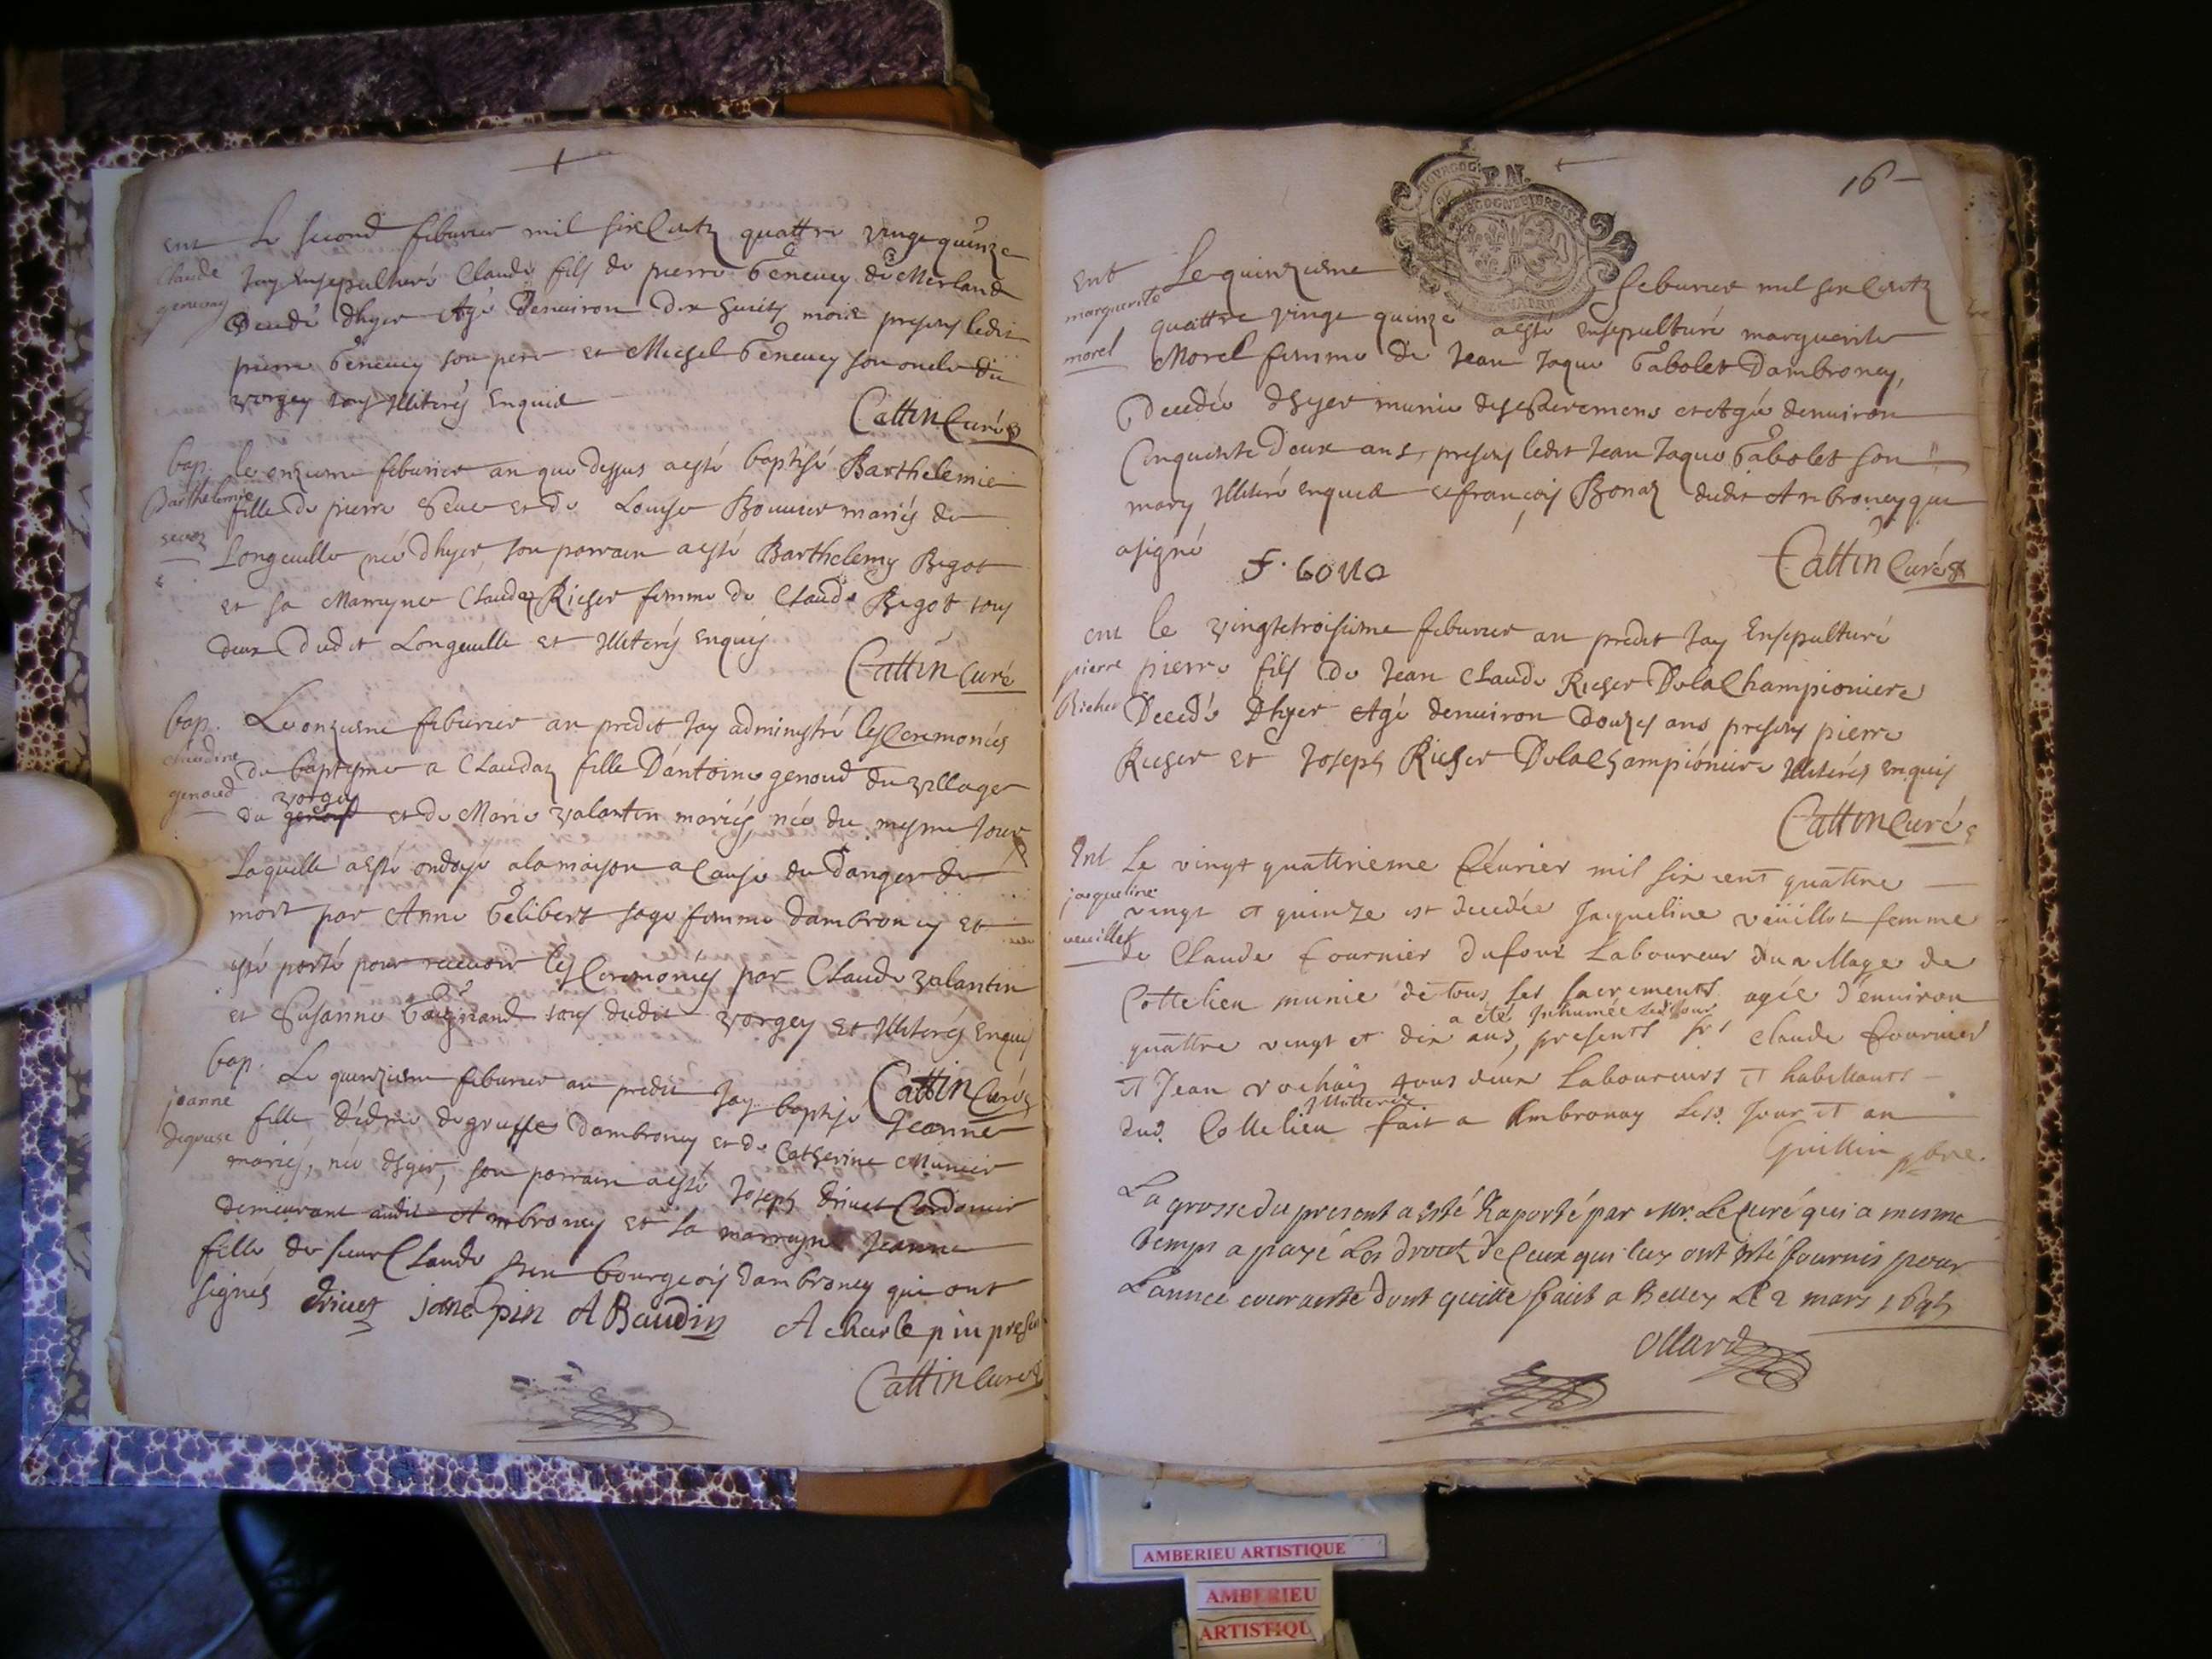 ent Le second feburier mil six Centz quattre vingt quinze
Claude genevay Jay Ensepulturé Claude fils de pierre Geneuey de Merland
Decedé dhyer Agé Denuiron dix huits mois presens ledit
pierre Geneuey son pere et Michel Geneuey son oncle du
vorgey tous Illiterés Enquis
Cattin Curé
bap. le onzieme feburier an que dessus a esté baptisé Barthelemie
Barthelemie fille de pierre Seue et de Louise Bouuier mariés de
Longeuille née dhyer, son parrain a esté Barthelemy Bigot
et sa Marrayne Claudaz Richer femme de Claude Bigot tous
deux Dudit Longeuille et Illiterés Enquis
Cattin Curé
bap. Le onzieme feburier an predit Jay administré les Ceremonies
claudine genoud du baptesme a Claudaz fille Dantoine genoud du village
vorgey
du et de Marie valantin mariés, née du mesme Jour
Laquelle a esté ondoyé a la maison a Cause du Danger de
mort par Anne Gelibert sage femme dambroney et
esté porté pour receuoir les Ceremonies par Claude valantin
et Susanne tous dudit vorgey et Illiterés Enquis
Cattin Curé
bap. Le quinzieme feburier an predit Jay baptisé Jeanne
jeanne degruse fille dédme degrusse dambroney et de Catherine Munier
mariés, née dhyer, son parrain a esté Joseph driuet Cordonnier
demeurant audit Ambroney et sa marrayne Jeanne
fille de sieur Claude bourgeois dambroney qui ont
signés driuet jane pin A Baudin A charle pin presen
Cattin Curé
16
BOURGOG P. N.
BOURGOGNE ET BRESSE
ent Le quinzieme feburier mil six Centz
marguerite quattre vingt quinze a esté ensepulturé marguerite
morel Morel femme de Jean Jaque Gabolet Dambroney,
Decedée dhyer munie des Sacremens et Agée denuiron
Cinquante Deux ans, presens ledit Jean Jaque Gabolet son
mary Illiteré enquis et françois Bonaz dudit Ambroney qui
a signé
F. bona
Cattin Curé
ent le vingtetroisieme feburier an predit Jay Ensepulturé
pierre pierre fils de Jean Claude Richer Delachampioniere
Richer Decedé Dhyer Agé denuiron douzes ans presens pierre
Richer et Joseph Richer Delachampioniere Illiterés enquis
Cattin Curé
Ent Le vingt quattrieme féurier mil six cent quattre
jacqueline vingt et quinze est decedée Jaqueline veüillot femme
veuillet de Claude fournier dufour Laboureur du village de
Cottelieu munie de tous ses sacrements agée d'enuiron
a été Inhumée ledit jour
quattre vingt et dix ans, presents srs claude fournier
et Jean rochaix tous deux Laboureurs et habittants
Illitterés
dud. Cottelieu fait a Ambronay les jour et an
Guillin pbre.
La grosse du present a esté Raporté par Mr. Le Curé qui a mesme
temps a payé Les droits de Ceux qui luy ont esté fournis pour
L'année courante dont quitte fait a Belley Le 2 mars 1695
Ollard
AMBERIEU ARTISTIQUE
AMBERIEU
ARTISTIQU